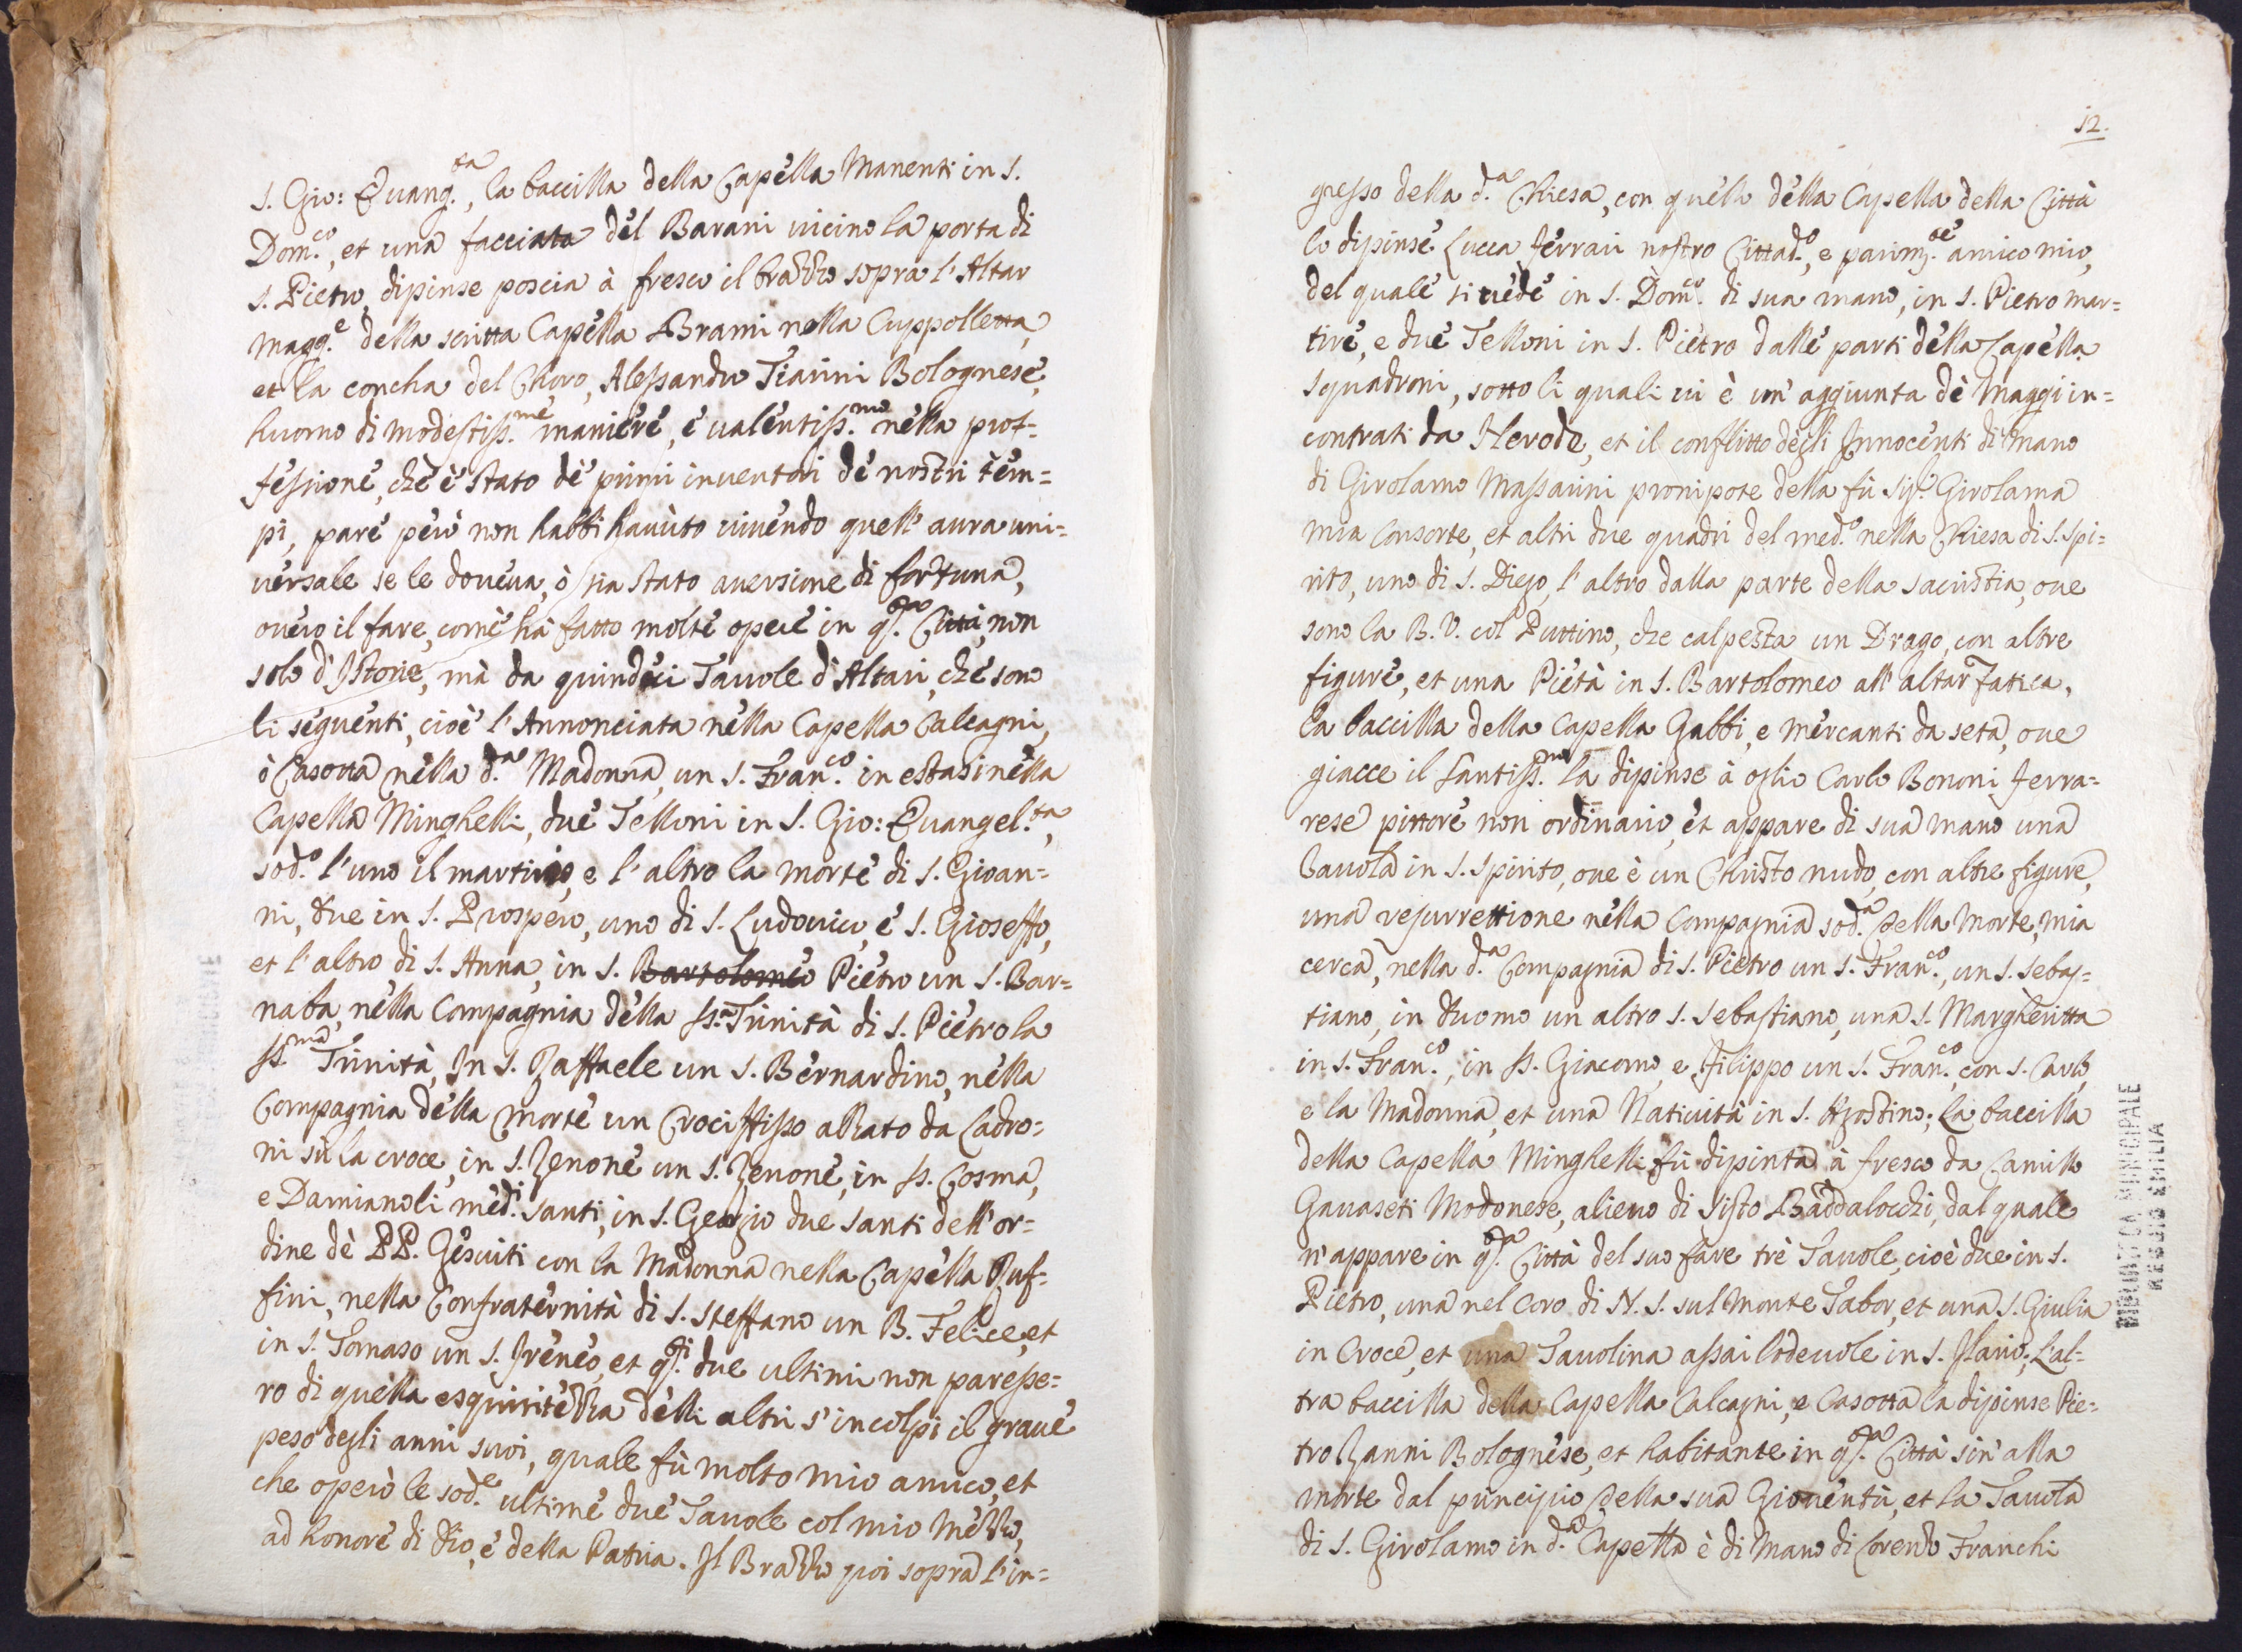 S. Gio: Euang.ta, la baccilla della Capella Manenti in S.
Dom.co, et una facciata del Barani uicino la porta di
S. Pietro, dipinse poscia à fresco il brazzo sopra l'Altar
magg.e della scritta Capella Brami nella Cuppolletta,
et la concha del Choro, Alessandro Tiarini Bolognese,
huomo di modestiss.me maniere, e ualentiss.mo nella prof=
fessione, che è stato dè primi inuentori dè nostri tem=
pi, pare però non habbi hauùto uiuendo quell'aura uni=
uersale se le doueua, ò sia stato auersione di fortuna,
ouero il fare, comè hà fatto molte opere in q.sta Città, non
solo d'Istorie, mà da quindeci Tauole d'Altari, che sono
li seguenti, cioè l'Annonciata nella Capella Calcagni,
ò Casotta nella d.a Madonna, un S. Fran.co in estasi nella
Capella Minghelli, due Telloni in S. Gio: Euangel.ta,
sod.o l'uno il martirio, e l'altro la morte di S. Gioan=
ni, due in S. Prospero, uno di S. Ludouico, e S. Gioseffo,
et l'altro di S. Anna, in S. Bartolomeo Pietro un S. Bar=
naba, nella Compagnia della SS.a Trinità di S. Pietro la
SS.ma Trinità, In S. Raffaele un S. Bernardino, nella
Compagnia della Morte un Crociffisso alzato da Ladro=
ni sù la croce, in S. Zenone un S. Zenone, in SS. Cosma,
e Damiano li med.i santi, in S. Georgio due santi dell'or=
dine dè PP. Gesuiti con la Madonna nella Capella Ruf=
fini, nella Confraternità di S. Steffano un B. Felice, et
in S. Tomaso un S. Ireneo, et q.sti due ultimi non paresse=
ro di quella esquisitezza delli altri s'incolpi il graue
peso degli anni suoi, quale fù molto mio amico, et
che operò le sod.e ultime due Tauole col mio mezzo,
ad honore di Dio, e della Patria. Il Brazzo poi sopra l'in=
12.
gresso della d.a Chiesa, con quela della Capella della Città
lo dipinse Lucca Ferrari nostro Cittad.o, e parim.te amico mio,
del quale si uede in S. Dom.co di sua mano, in S. Pietro mar=
tire, e due Telloni in S. Pietro dalle parti della Capella
Squadroni, sotto li quali ui è un'aggiunta dè Maggi in=
contrati da Herode, et il conflitto degli Innocenti di mano
di Girolamo Massarini pronipote della fù Sig.a Girolama
mia Consorte, et altri due quadri del med.o nella Chiesa di S. Spi=
rito, uno di S. Diego, l'altro dalla parte della sacristia, oue
sono la B. V. col Puttino, che calpesta un Drago, con altre
figure, et una Pietà in S. Bartolomeo all'altar Fatica,
la baccilla della Capella Gabbi, e mercanti da seta, oue
giacce il Santiss.mo la dipinse à oglio Carlo Bononi Ferra=
rese pittore non ordinario, et appare di sua mano una
Tauola in S. Spirito, oue è un Christo nudo, con altre figure,
una resurrettione nella Compagnia sod.a della Morte, mia
cerca, nella d.a Compagnia di S. Pietro un S. Fran.co, un S. Sebas=
tiano, in Duomo un altro S. Sebastiano, una S. Margheritta
in S. Fran.co, in SS. Giacomo, e Filippo un S. Fran.co, con S. Carlo,
e la Madonna, et una Natiuità in S. Agostino; La baccilla
della Capella Minghelli fù dipinta à fresco da Camillo
Gauaseti Modonese, alieuo di Sisto Baddalocchi, dal quale
n'appare in q.sta Città del suo fare trè Tauole, cioè due in S.
Pietro, una nel Coro di N. S. sul Monte Tabor, et una S. Giulia
in Croce, et una Tauolina assai lodeuole in S. Ilario; L'al=
tra baccilla della Capella Calcagni, e Casotta la dipinse Pie=
tro Zanni Bolognese, et habitante in q.sta Città sin'alla
morte dal principio della sua Giouentù, et la Tauola
di S. Girolamo in d.a Capella è di mano di Lorenzo Franchi
BIBLIOTECA MUNICIPALE
REGGIO EMILIA